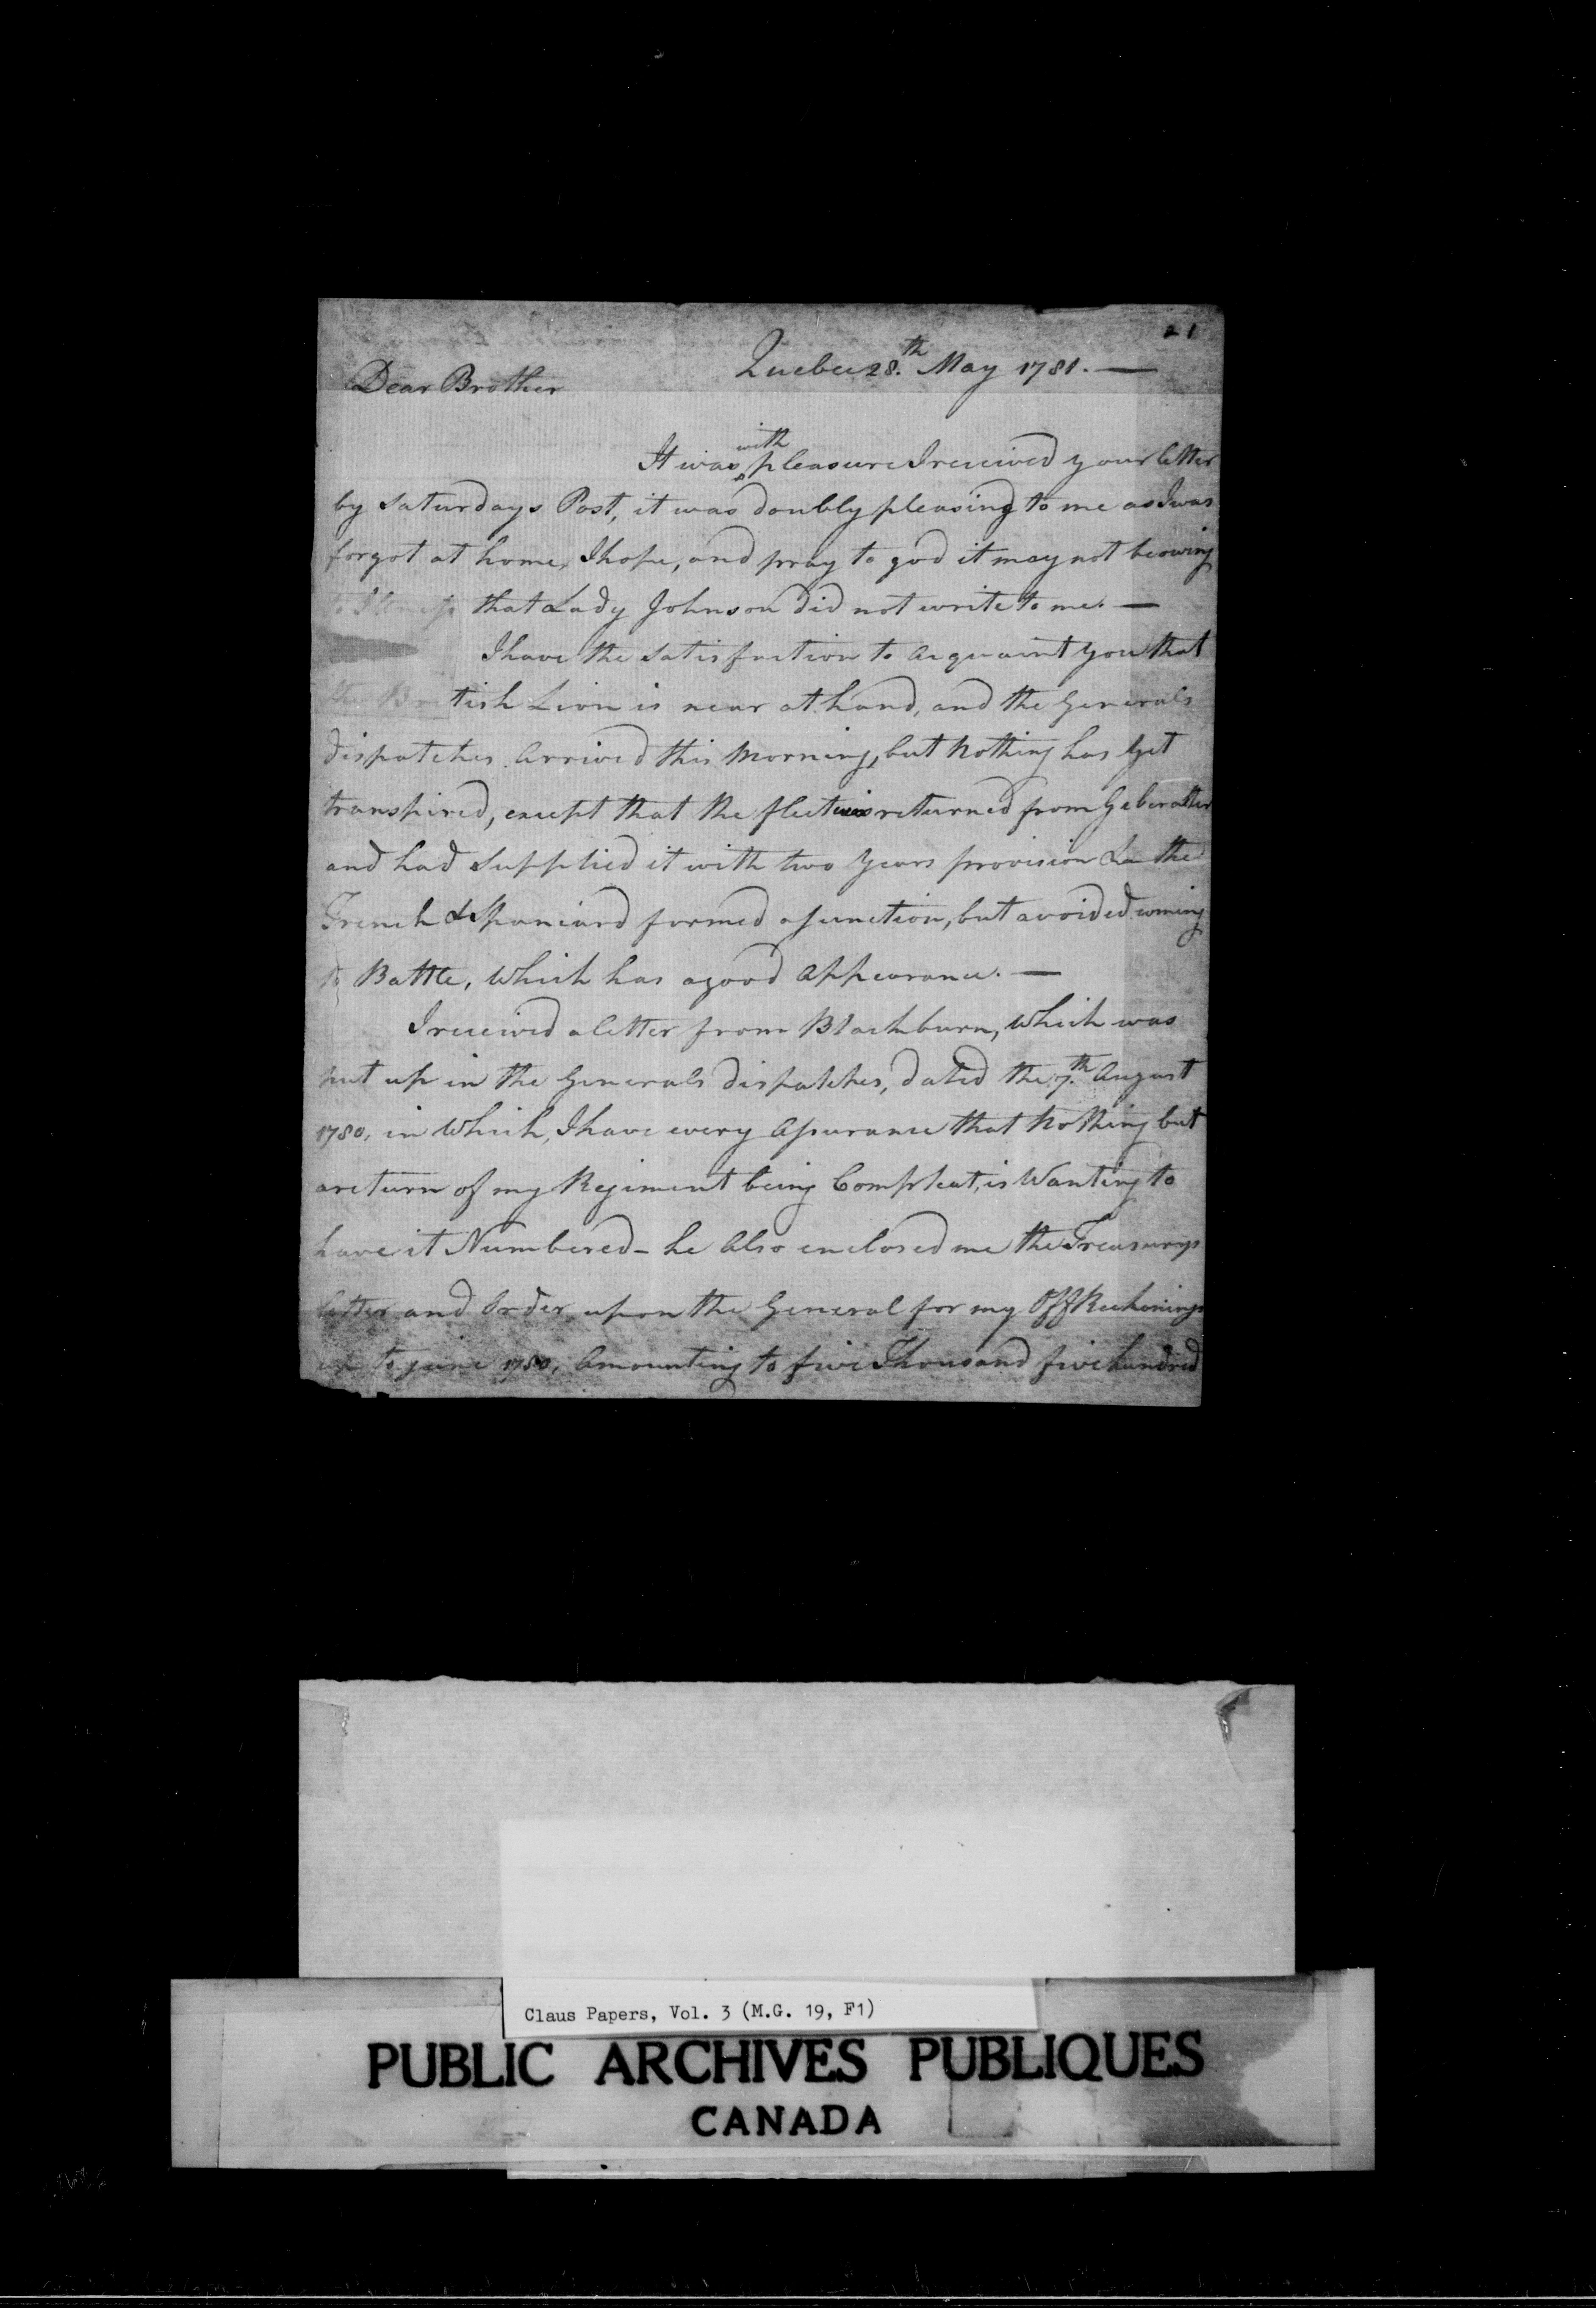 21
Quebec 28.th May 1781. —
Dear Brother
with
It was pleasure I received your letter
by Saturdays Post, it was doubly pleasing to me as I was
forgot at home, I hope, and pray to god it may not be owing
to Illness that Lady Johnson did not write to me. —
I have the Satisfaction to Acquaint you that
the British Lion is near at hand, and the Generals
dispatches Arrived this Morning, but Nothing has Yet
transpired, except that the fleet was returned from Geberalter
and had Supplied it with two Years provision the
French & Spaniard formed a junction, but avoided coming
to Battle, Which has a good Appearance. —
I received a letter from Blackburn, Which was
put up in the Generals dispatches, dated the 7.th August
1780, in Which, I have every Assurance that Nothing but
a return of my Regiment being Compleat, is Wanting to
have it Numbered - he Also enclosed me the Treasurys
letter and Order upon the General for my Off Reckonings
up to june 1780, Amounting to five Thousand five hundred
Claus Papers, Vol. 3 (M.G. 19, F1)
PUBLIC ARCHIVES PUBLIQUES
CANADA